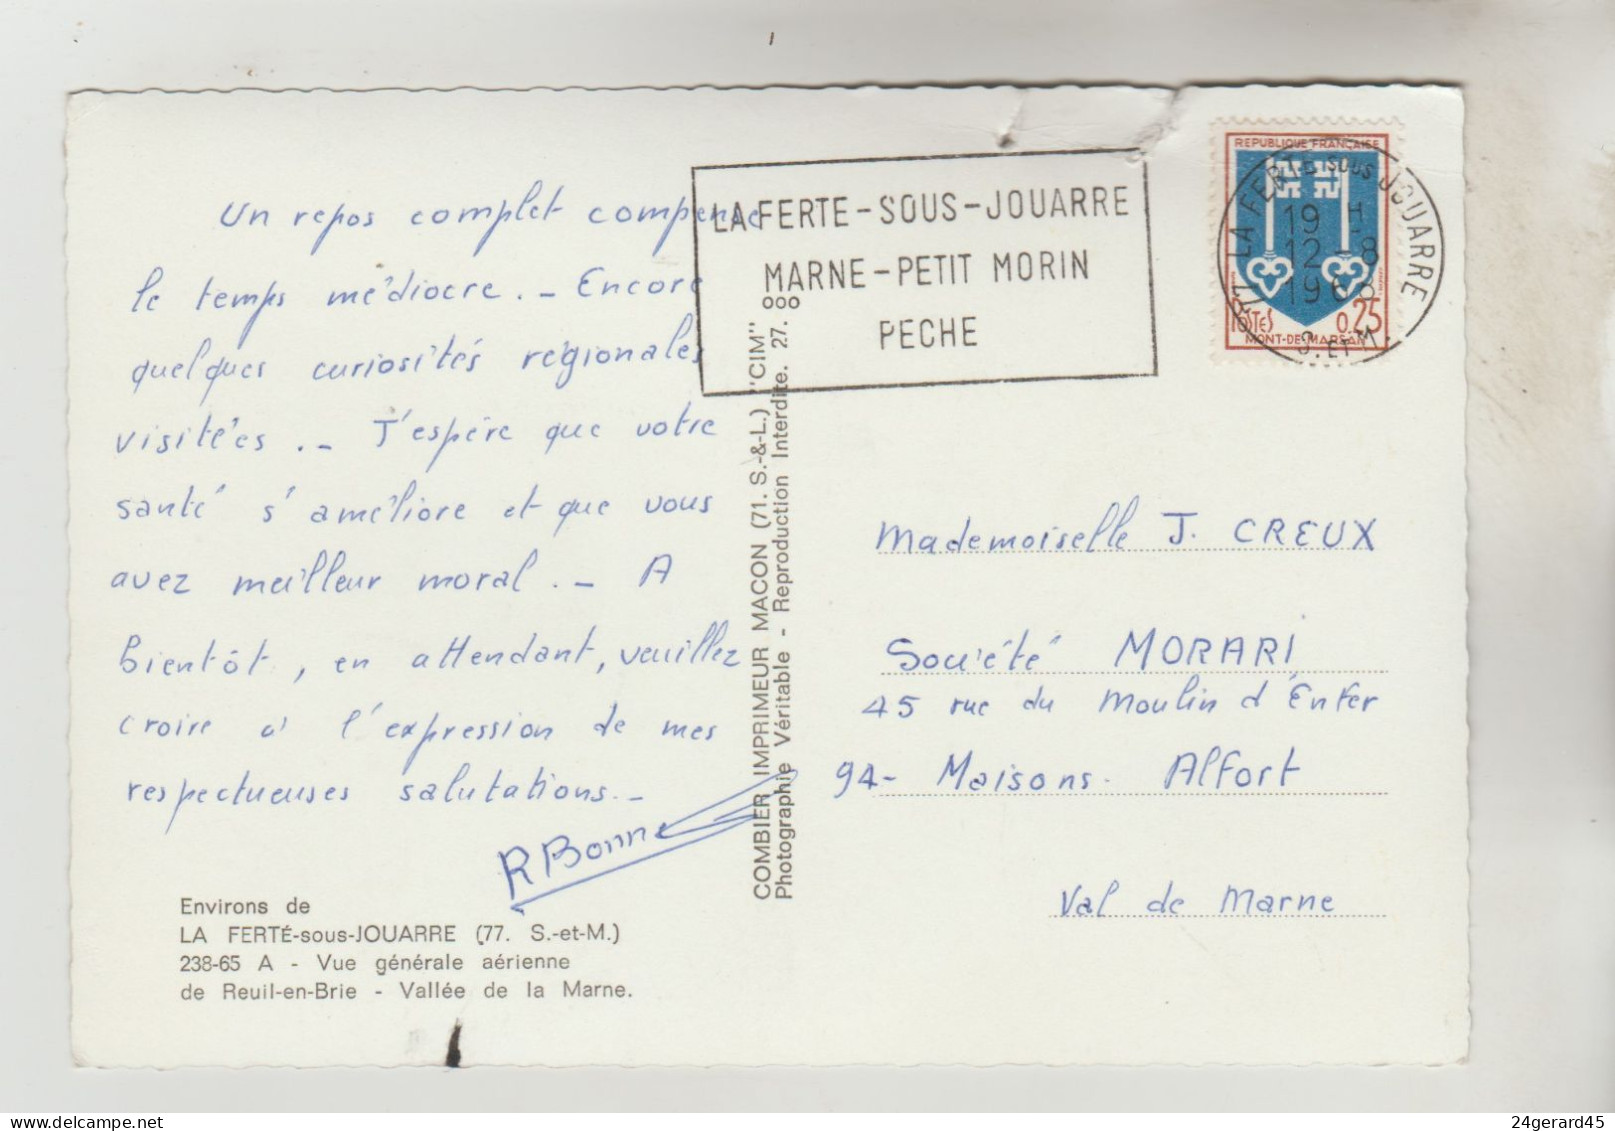 Un repos complet compense
le temps médiocre. _ Encore
quelques curiosités régionales
visitées. _ J'espère que votre
santé s'améliore et que vous
avez meilleur moral. _ A
bientôt, en attendant, veuillez
croire à l'expression de mes
respectueuses salutations. _
R Bonne
Environs de
LA FERTÉ-sous-JOUARRE (77. S.-et-M.)
238-65 A - Vue générale aérienne
de Reuil-en-Brie - Vallée de la Marne.
COMBIER IMPRIMEUR MACON (71. S.-&-L.) "CIM"
Photographie Véritable - Reproduction Interdite. 27. ooo
LA FERTE-SOUS-JOUARRE
MARNE-PETIT MORIN
PECHE
REPUBLIQUE FRANÇAISE
POSTES 0,25
MONT-DE-MARSAN
77 LA FERTE SOUS JOUARRE
19 H
12-8
1968
S. ET M.
Mademoiselle J. CREUX
Société MORARI
45 rue du Moulin d'Enfer
94- Maisons-Alfort
Val de Marne
24gerard45